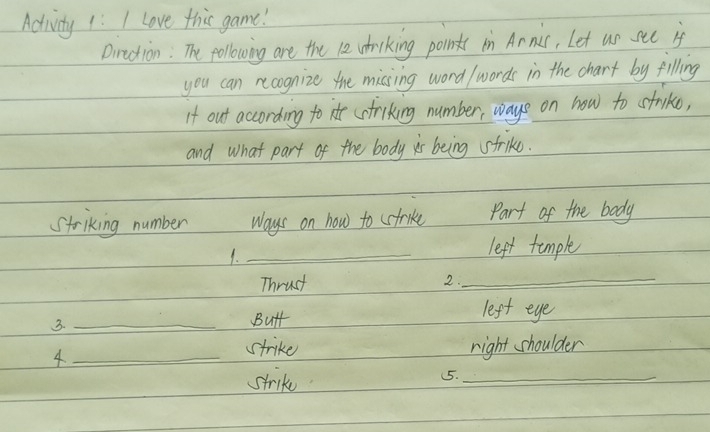 Activity 1: I Love this game!
Direction: The following are the 12 striking points in Arnis, Let us see if
you can recognize the missing word/words in the chart by filling
it out according to its striking number, ways on how to strike,
and what part of the body is being strike.
Striking number Ways on how to strike Part of the body
1. ____________ left temple
Thrust 2. ____________
3. ____________ Butt left eye
4. ____________ strike right shoulder
strike 5. ____________